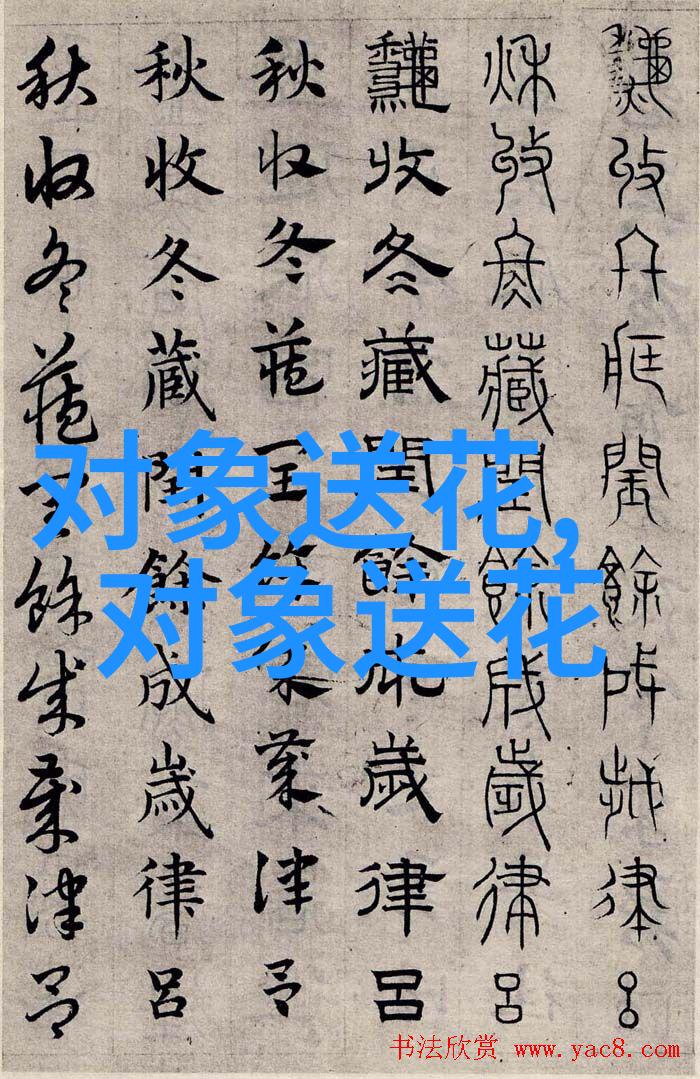 秋收冬藏閏餘成歲律呂
秋收冬藏閏餘成歲律呂
龝收冬藏閏餘成歲律呂
秋收冬藏閏餘成歲律呂
秋收冬藏閏餘成歲律呂
秋收冬藏閏餘成歲律呂
对象送花,
对象送花
书法欣赏 www.yac8.com